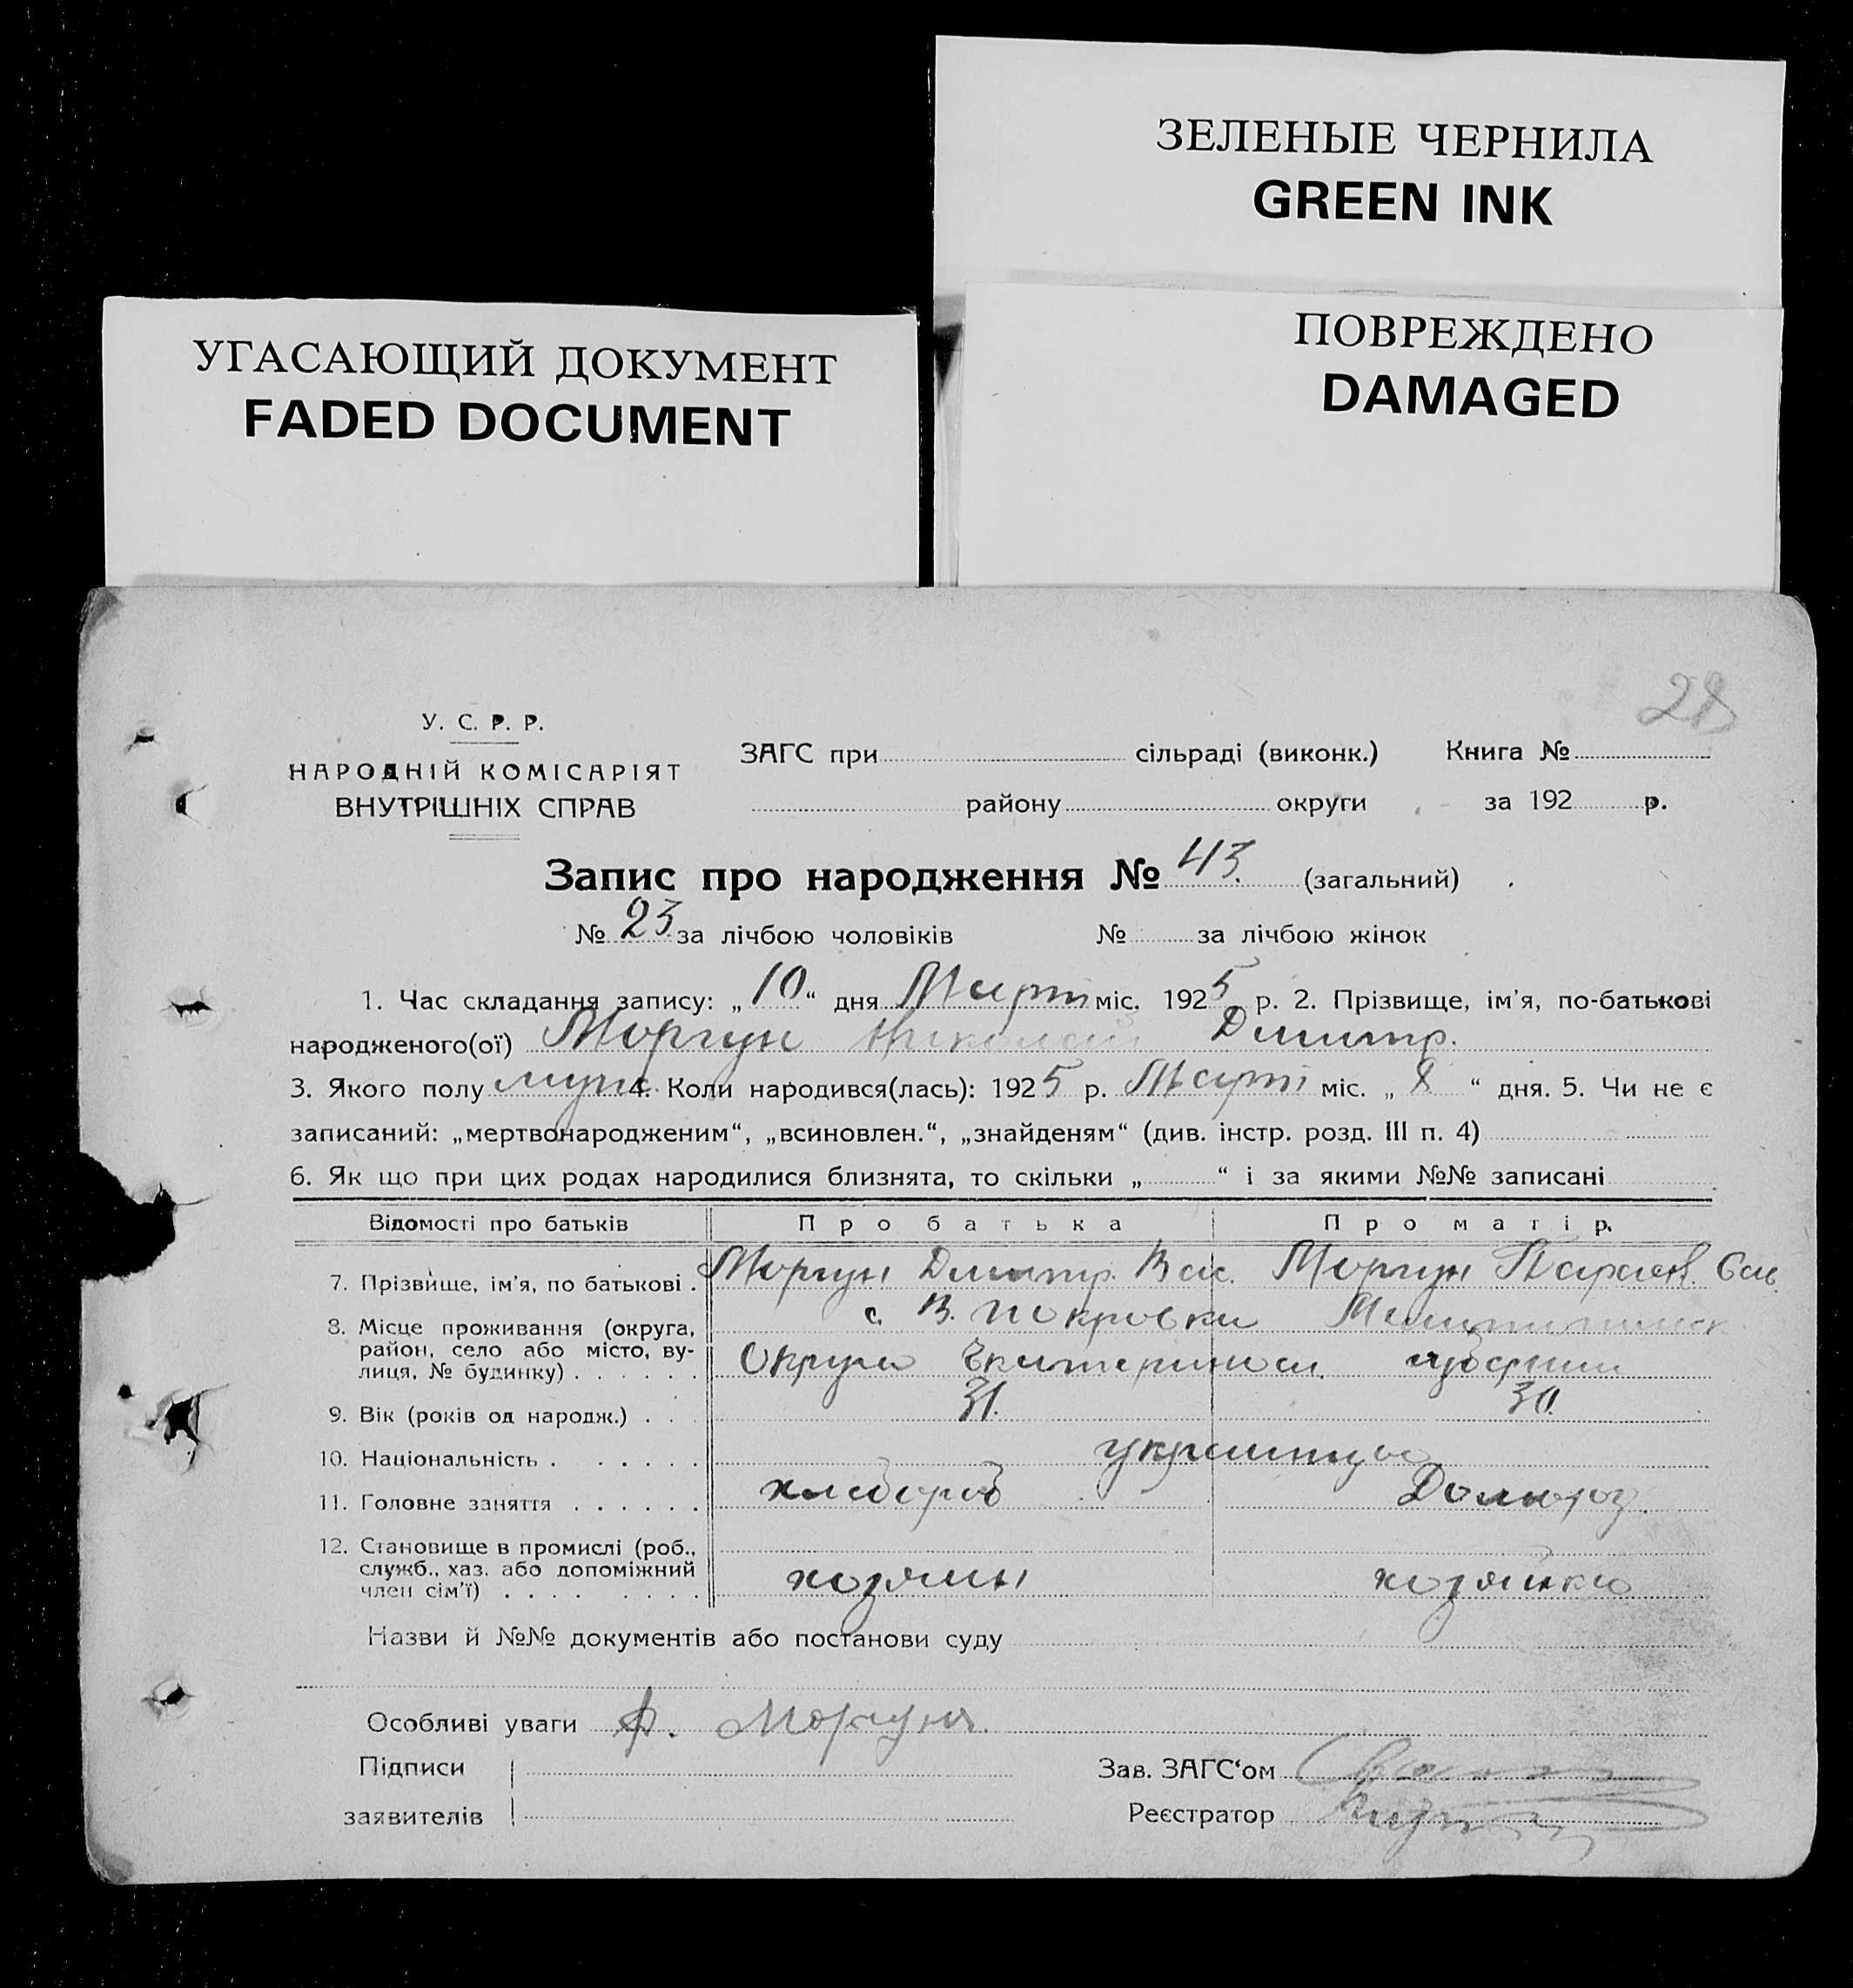 ЗЕЛЕНЫЕ ЧЕРНИЛА
GREEN INK
ПОВРЕЖДЕНО
DAMAGED
УГАСАЮЩИЙ ДОКУМЕНТ
FADED DOCUMENT
28
У. С. Р. Р.
НАРОДНІЙ КОМІСАРІЯТ
ВНУТРІШНІХ СПРАВ
ЗАГС при сільраді (виконк.) Книга №
району округи за 192 р.
Запис про народження № 43. (загальний)
№ 23 за лічбою чоловіків № за лічбою жінок
1. Час складання запису: „10“ дня Март міс. 1925 р. 2. Прізвище, ім'я, по-батькові
народженого(ої) Моргун Николай Димитр.
3. Якого полу муж. 4. Коли народився(лась): 1925 р. Март міс. „8“ дня. 5. Чи не є
записаний: „мертвонародженим“, „всиновлен.“, „знайденям“ (див. інстр. розд. III п. 4)
6. Як що при цих родах народилися близнята, то скільки „ “ і за якими №№ записані
Відомості про батьків Про батька Про матір.
7. Прізвище, ім'я, по батькові . Моргун Димитр. Вас. Моргун Параск.
8. Місце проживання (округа, с. В. Покровки
район, село або місто, ву-
лиця, № будинку) . . . . . . Округа Екатериносл. губернии
9. Вік (років од народж.) . . . 31. 30.
10. Національність . . . . . . украинцы
11. Головне заняття . . . . . . хлебороб Домохоз.
12. Становище в промислі (роб.,
служб., хаз. або допоміжний
член сім'ї) . . . . . . . . хозяин хозяйка
Назви й №№ документів або постанови суду
Особливі уваги Д. Моргун
Підписи
заявителів
Зав. ЗАГС‘ом
Реєстратор